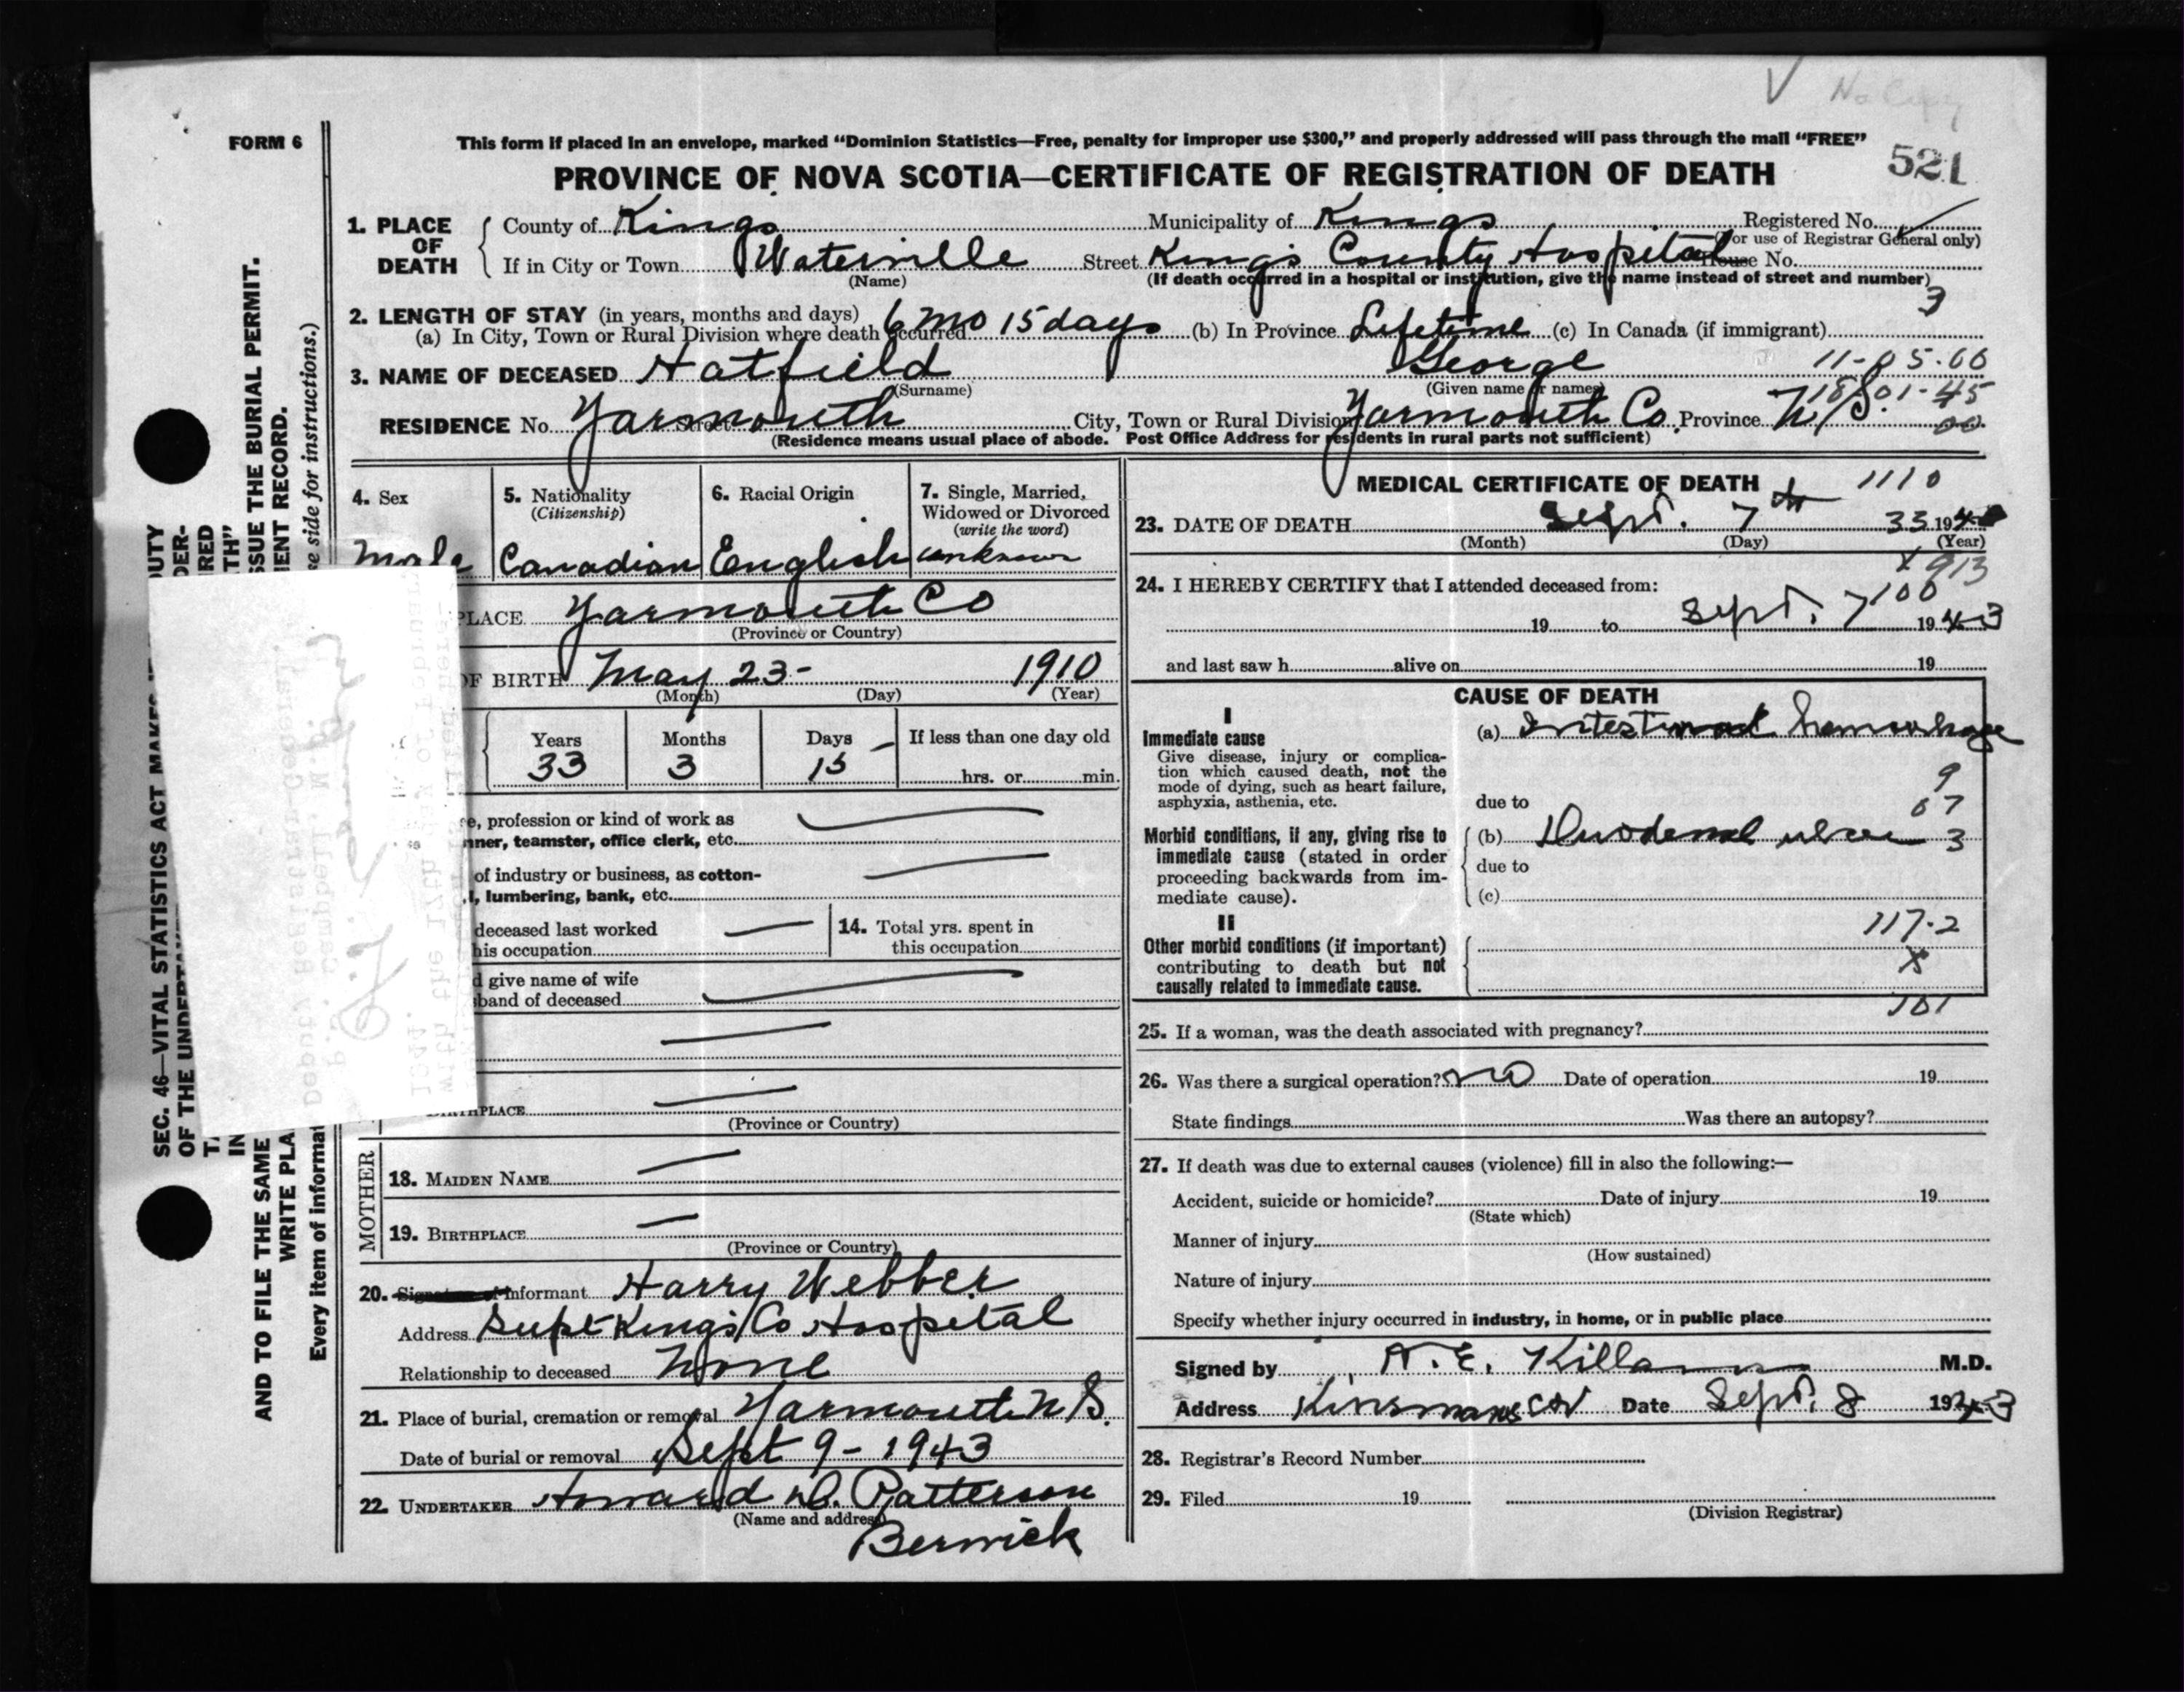 No Copy
FORM 6
This form if placed in an envelope, marked “Dominion Statistics—Free, penalty for improper use $300,” and properly addressed will pass through the mail “FREE”
PROVINCE OF NOVA SCOTIA—CERTIFICATE OF REGISTRATION OF DEATH
521
1. PLACE OF DEATH
County of Kings Municipality of Kings Registered No.
(For use of Registrar General only)
If in City or Town Waterville Street Kings County Hospital House No.
(Name) (If death occurred in a hospital or institution, give the name instead of street and number)
3
2. LENGTH OF STAY (in years, months and days)
(a) In City, Town or Rural Division where death occurred 6 mo 15 days (b) In Province Lifetime (c) In Canada (if immigrant)
3. NAME OF DECEASED Hatfield George 11-05.00
(Surname) (Given name or names)
18801-45
RESIDENCE No. Yarmouth Street City, Town or Rural Division Yarmouth Co. Province N/S. 00
(Residence means usual place of abode. Post Office Address for residents in rural parts not sufficient)
4. Sex 5. Nationality (Citizenship) 6. Racial Origin 7. Single, Married, Widowed or Divorced (write the word)
Male Canadian English unknown
PLACE Yarmouth Co
(Province or Country)
OF BIRTH May 23- 1910
(Month) (Day) (Year)
Years Months Days If less than one day old
33 3 15 hrs. or min.
e, profession or kind of work as
nner, teamster, office clerk, etc.
of industry or business, as cotton-
l, lumbering, bank, etc.
deceased last worked
his occupation
14. Total yrs. spent in
this occupation
d give name of wife
sband of deceased
BIRTHPLACE
(Province or Country)
MOTHER
18. MAIDEN NAME
19. BIRTHPLACE
(Province or Country)
20. Signature of Informant Harry Webber
Address Supt Kings Co Hospital
Relationship to deceased None
21. Place of burial, cremation or removal Yarmouth N/S.
Date of burial or removal Sept 9-1943
22. UNDERTAKER Howard D. Patterson
(Name and address)
Berwick
MEDICAL CERTIFICATE OF DEATH 1110
23. DATE OF DEATH Sept. 7th 33 194
(Month) (Day) (Year)
X913
24. I HEREBY CERTIFY that I attended deceased from:
100
19 to Sept. 7 1943
and last saw h alive on 19
CAUSE OF DEATH
I
Immediate cause
Give disease, injury or complica-
tion which caused death, not the
mode of dying, such as heart failure,
asphyxia, asthenia, etc.
(a) Intestinal hemorrhage
9
due to 67
Morbid conditions, if any, giving rise to
immediate cause (stated in order
proceeding backwards from im-
mediate cause).
(b) Duodenal ulcer 3
due to
(c)
II
Other morbid conditions (if important)
contributing to death but not
causally related to immediate cause.
117-2
X
101
25. If a woman, was the death associated with pregnancy?
26. Was there a surgical operation? no Date of operation 19
State findings Was there an autopsy?
27. If death was due to external causes (violence) fill in also the following:—
Accident, suicide or homicide? Date of injury 19
(State which)
Manner of injury
(How sustained)
Nature of injury
Specify whether injury occurred in industry, in home, or in public place
Signed by Killam M.D.
Address Kinsmans Date Sept. 8 1943
28. Registrar's Record Number
29. Filed 19
(Division Registrar)
SEC. 46—VITAL STATISTICS ACT
OF THE
AND TO FILE THE SAME
WRITE
Every item of
ISSUE THE BURIAL PERMIT.
RECORD.
side for instructions.)